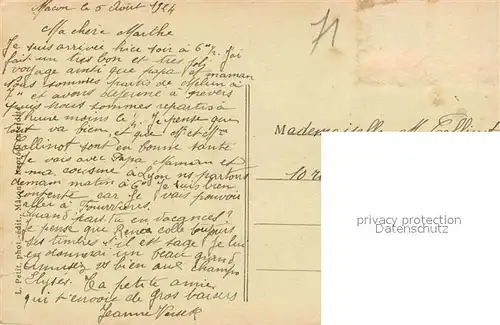 Macon le 5 Août 1924
Ma chère Marthe
Je suis arrivée hier soir à 6h½. J'ai
fait un très bon et très joli
voyage ainsi que papa et maman
nous sommes partis de Melun à
7h et avons déjeuné à Nevers
puis nous sommes repartis à
1 heure moins le ¼. Je pense que
tout va bien, et que Mr et Mme
sont en bonne santé
Je vais avec Papa Maman et
ma cousine à Lyon ns partons
demain matin à 6h Je suis bien
contente car je vais pouvoir
aller à Fourvières.
quand vas tu en vacances?
Je pense que colle toujours
ses timbres s'il est sage je lui
en donnerai un beau quand
bien aux champs
Elysées. Ta petite amie
qui t'envoie de gros baisers
Jeanne
Mademoiselle M.
10 r
L. Petit, phot.-édit.
privacy
protection